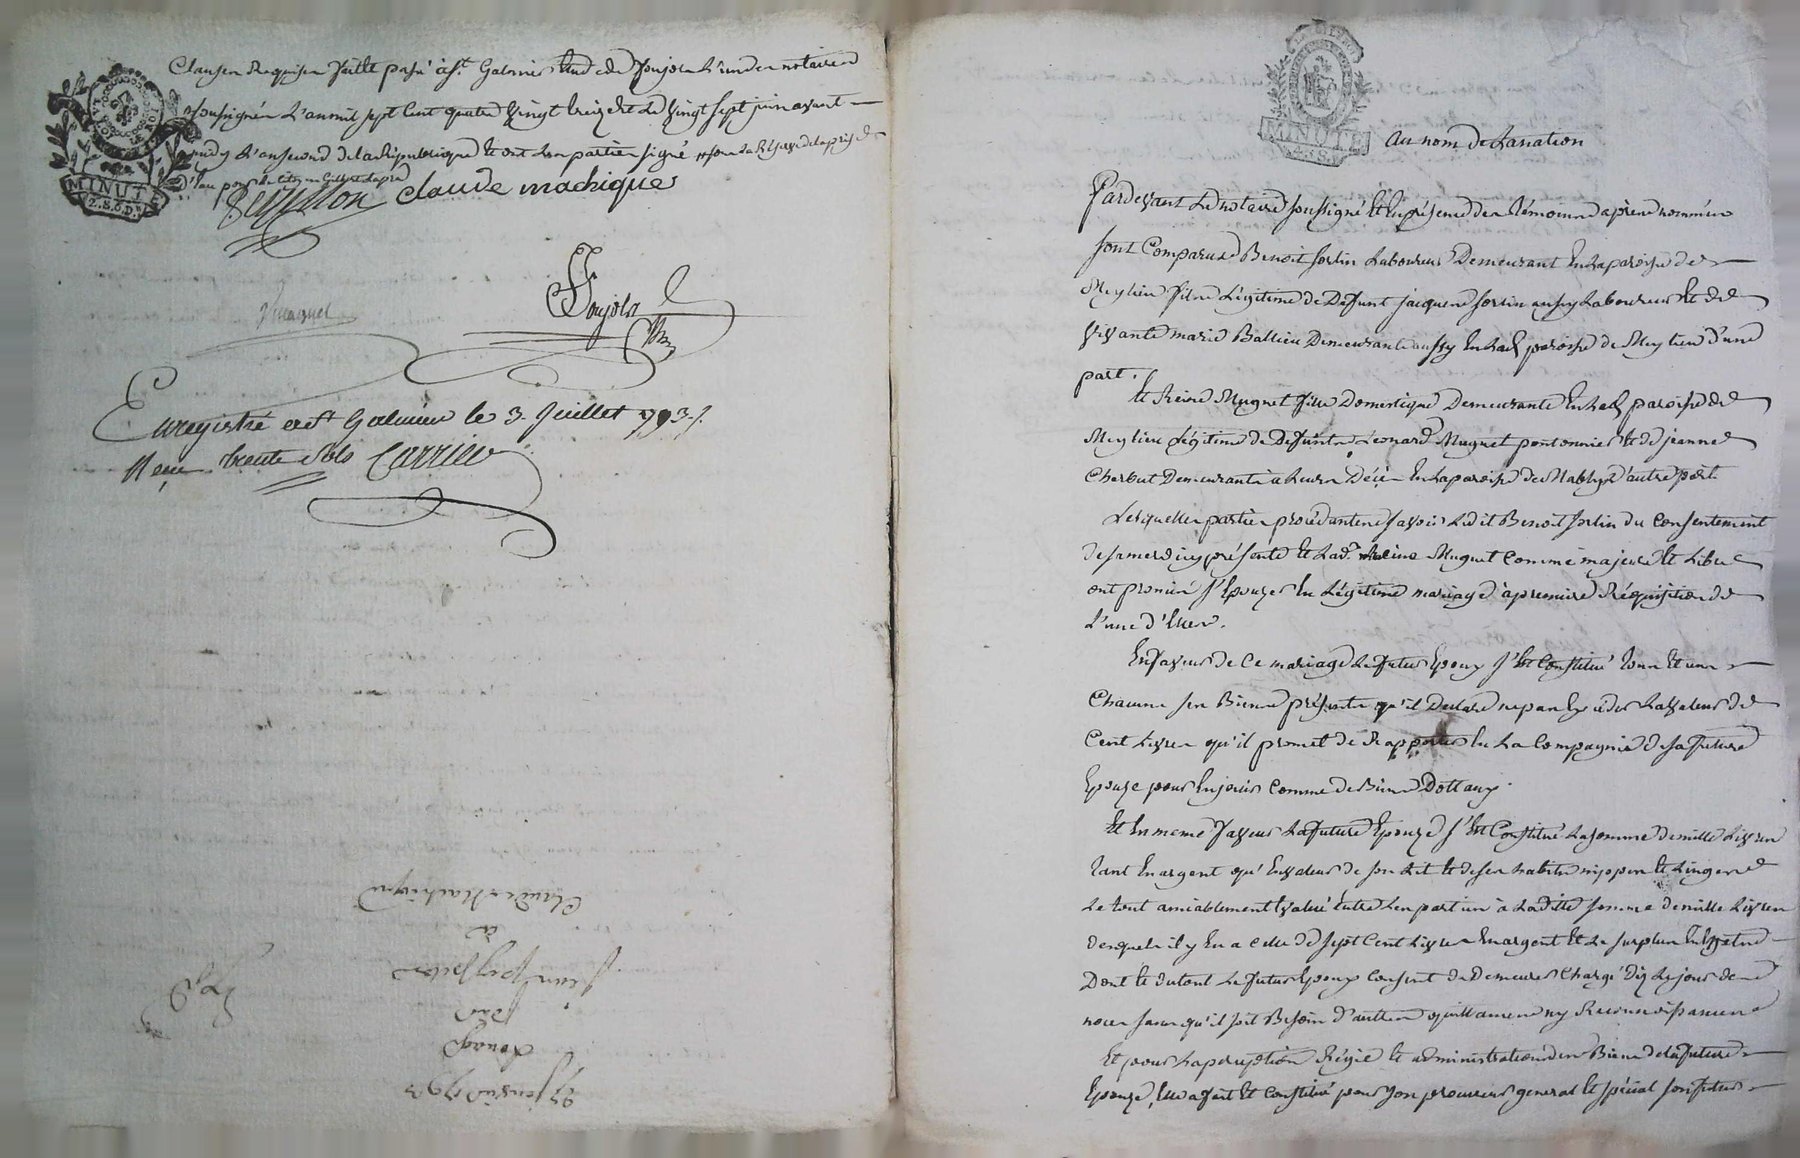 Clauses Requises faitte passé à St. Galmier Etude de Poujola L'un des notaires
soussignés L'an mil sept Cent quatre Vingt treize Et Le Vingt sept juin avant
midy L'an second de la République Et ont Les parties signé
Peyssson Claude machique
Muguet
Poujola
Enregistré a St Galmier le 3. Juillet 1793.
Reçu trente sols Carrier
MINUTE
2.S.6.D.
27 juin 1793
Louage
par
jean peysson
à
Claude Machique
Exp.d
LA LOI ET LE ROI
MINUTE
4.S.
Au nom de La nation
Pardevant Le notaire soussigné Et En présence des témoins après nommés
sont Comparus Benoit fortin Laboureur Demeurant En La paroisse de
Meylieu fils Légitime de Défunt jacques fortin aussy Laboureur Et de
Vivante marie Ballieu Demeurante aussy En lad. paroisse de Meylieu d'une
part.
Et Reine Muguet fille Domestique Demeurante En lad. paroisse de
Meylieu Légitime de Défunts Léonard Muguet pontonnier Et de jeanne
Cherbut Demeurants à Leurs Décès En La paroisse de Nablys d'autre part.
Lesquelles parties procédantes savoir Ledit Benoit fortin du Consentement
de sa mere icy présente Et Lad.e Reine Muguet Comme majeure Et Libre
ont promis s'Epouzer En Légitime mariage à premiere Réquisition de
L'une d'Elles.
En faveur de Ce mariage Le futur Epoux s'Est Constitué tous Et uns
Chacuns ses Biens présents qu'il Declare ne pas Exceder La valeur de
Cent Livres qu'il promet de Rapporter En La Compagnie de sa future
Epouze pour En jouir Comme de Biens Dottaux.
Et En meme faveur La future Epouze s'Est Constitué La somme de mille Livres
tant En argent qu'En valeur de son Lit Et de ses habits nippes Et Linges
Le tout amiablement Evalué Entre Les parties à La ditte somme de mille Livres
desquels il y En a Celle de sept Cent Livres En argent Et Le surplus En Effets
Dont Et du tout Le futur Epoux Consent de Demeurer Chargé Dez Le jour des
noces sans qu'il soit Besoin D'autres quittances ny Reconnoissances
Et pour La perception Régie Et administration des Biens de La future
Epouze, Elle a fait Et Constitué pour son procureur general Et spécial son futur